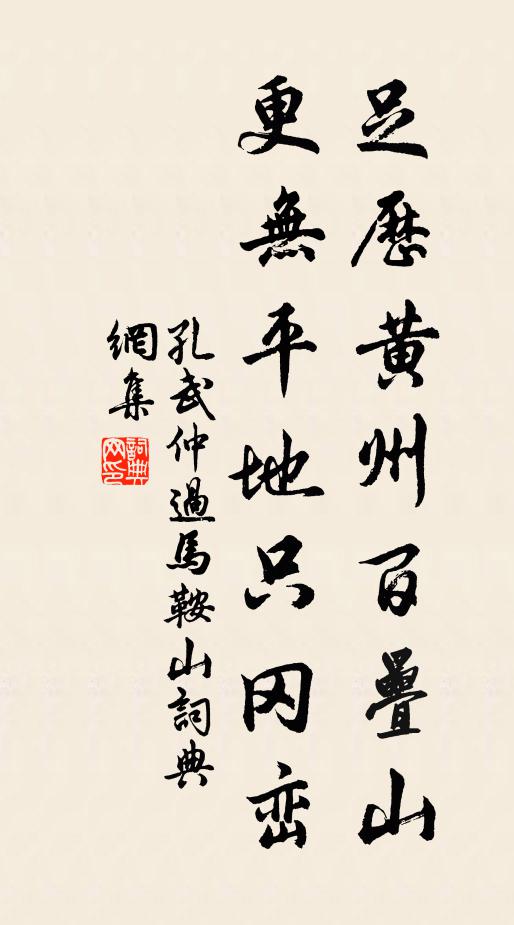 足歷黃州百疊山
更無平地只冈峦
孔武仲過馬鞍山詞典
網集
詞典网印